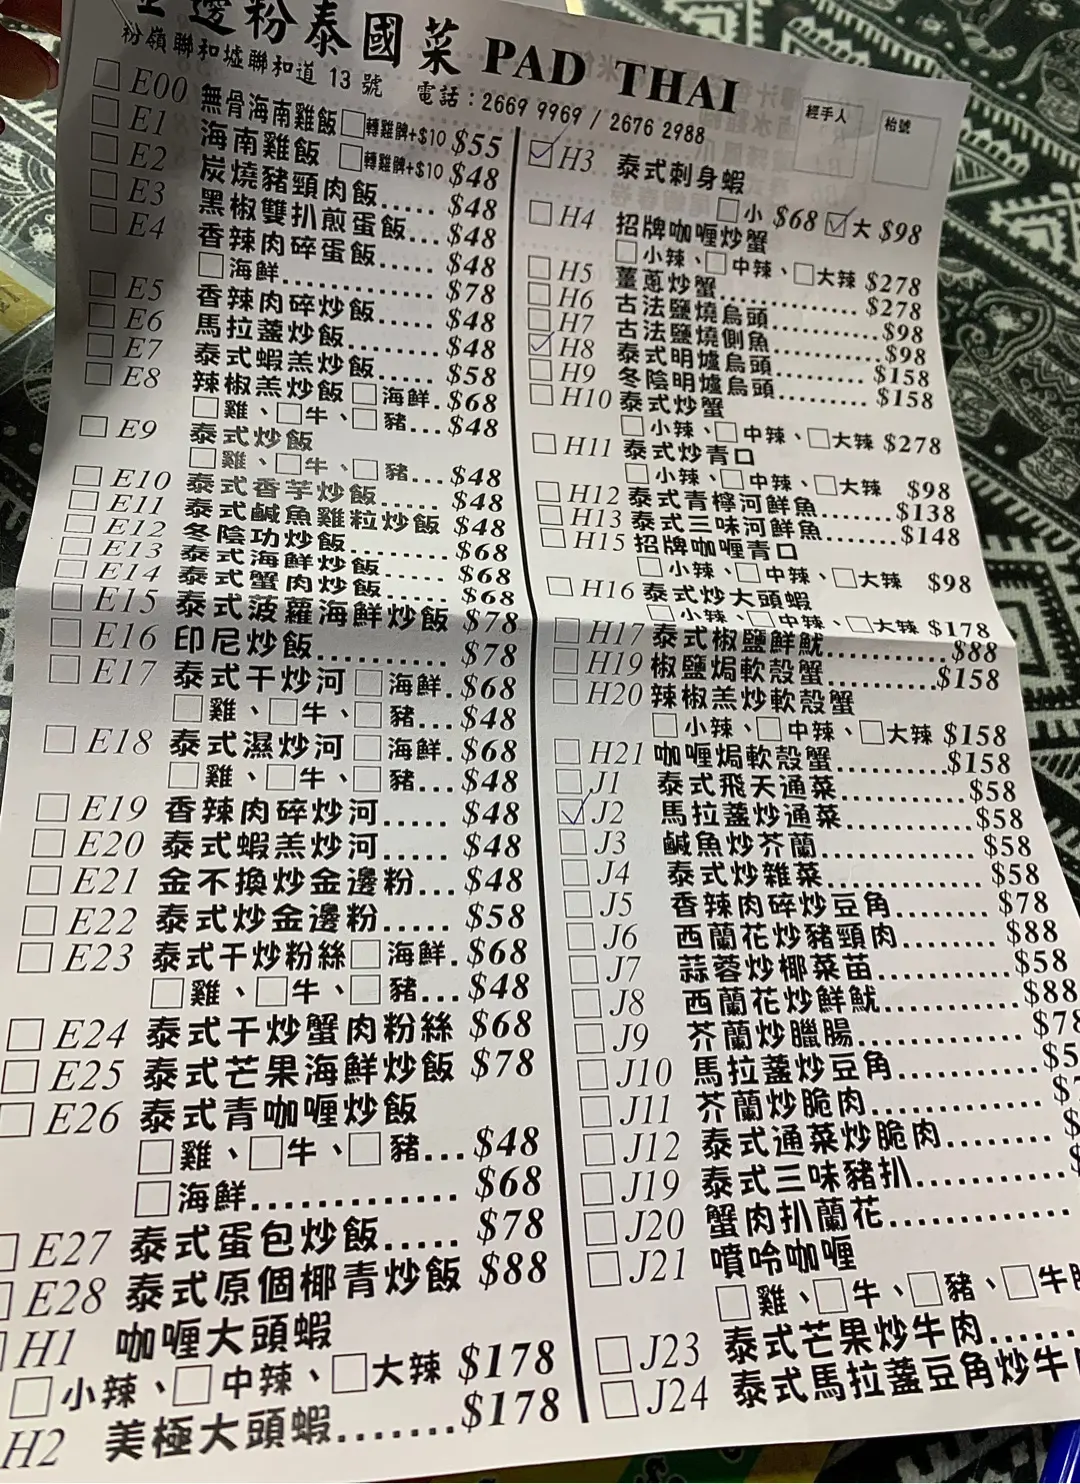 邊粉泰國菜 PAD THAI
粉嶺聯和墟聯和道 13 號 電話：2669 9969 / 2676 2988
經手人
枱號
E00 無骨海南雞飯 轉雞髀+$10 $55
E1 海南雞飯 轉雞髀+$10 $48
E2 炭燒豬頸肉飯..... $48
E3 黑椒雙扒煎蛋飯... $48
E4 香辣肉碎蛋飯..... $48
海鮮............... $78
E5 香辣肉碎炒飯..... $48
E6 馬拉盞炒飯........ $48
E7 泰式蝦羔炒飯..... $58
E8 辣椒羔炒飯 海鮮. $68
雞、牛、豬... $48
E9 泰式炒飯
雞、牛、豬... $48
E10 泰式香芋炒飯..... $48
E11 泰式鹹魚雞粒炒飯 $48
E12 冬陰功炒飯........ $68
E13 泰式海鮮炒飯..... $68
E14 泰式蟹肉炒飯..... $68
E15 泰式菠蘿海鮮炒飯 $78
E16 印尼炒飯........... $78
E17 泰式干炒河 海鮮. $68
雞、牛、豬... $48
E18 泰式濕炒河 海鮮. $68
雞、牛、豬... $48
E19 香辣肉碎炒河..... $48
E20 泰式蝦羔炒河..... $48
E21 金不換炒金邊粉... $48
E22 泰式炒金邊粉..... $58
E23 泰式干炒粉絲 海鮮. $68
雞、牛、豬... $48
E24 泰式干炒蟹肉粉絲 $68
E25 泰式芒果海鮮炒飯 $78
E26 泰式青咖喱炒飯
雞、牛、豬... $48
海鮮.............. $68
E27 泰式蛋包炒飯..... $78
E28 泰式原個椰青炒飯 $88
H1 咖喱大頭蝦
小辣、中辣、大辣 $178
H2 美極大頭蝦....... $178
H3 泰式刺身蝦
小 $68 大 $98
H4 招牌咖喱炒蟹
小辣、中辣、大辣 $278
H5 薑蔥炒蟹............ $278
H6 古法鹽燒烏頭......... $98
H7 古法鹽燒側魚......... $98
H8 泰式明爐烏頭......... $158
H9 冬陰明爐烏頭......... $158
H10 泰式炒蟹
小辣、中辣、大辣 $278
H11 泰式炒青口
小辣、中辣、大辣 $98
H12 泰式青檸河鮮魚....... $138
H13 泰式三味河鮮魚....... $148
H15 招牌咖喱青口
小辣、中辣、大辣 $98
H16 泰式炒大頭蝦
小辣、中辣、大辣 $178
H17 泰式椒鹽鮮魷......... $88
H19 椒鹽焗軟殼蟹......... $158
H20 辣椒羔炒軟殼蟹
小辣、中辣、大辣 $158
H21 咖喱焗軟殼蟹......... $158
J1 泰式飛天通菜......... $58
J2 馬拉盞炒通菜......... $58
J3 鹹魚炒芥蘭............ $58
J4 泰式炒雜菜............ $58
J5 香辣肉碎炒豆角....... $78
J6 西蘭花炒豬頸肉....... $88
J7 蒜蓉炒椰菜苗......... $58
J8 西蘭花炒鮮魷......... $88
J9 芥蘭炒臘腸............ $78
J10 馬拉盞炒豆角......... $5
J11 芥蘭炒脆肉............
J12 泰式通菜炒脆肉....... $
J19 泰式三味豬扒.........
J20 蟹肉扒蘭花............
J21 噴呤咖喱
雞、牛、豬、牛
J23 泰式芒果炒牛肉......
J24 泰式馬拉盞豆角炒牛